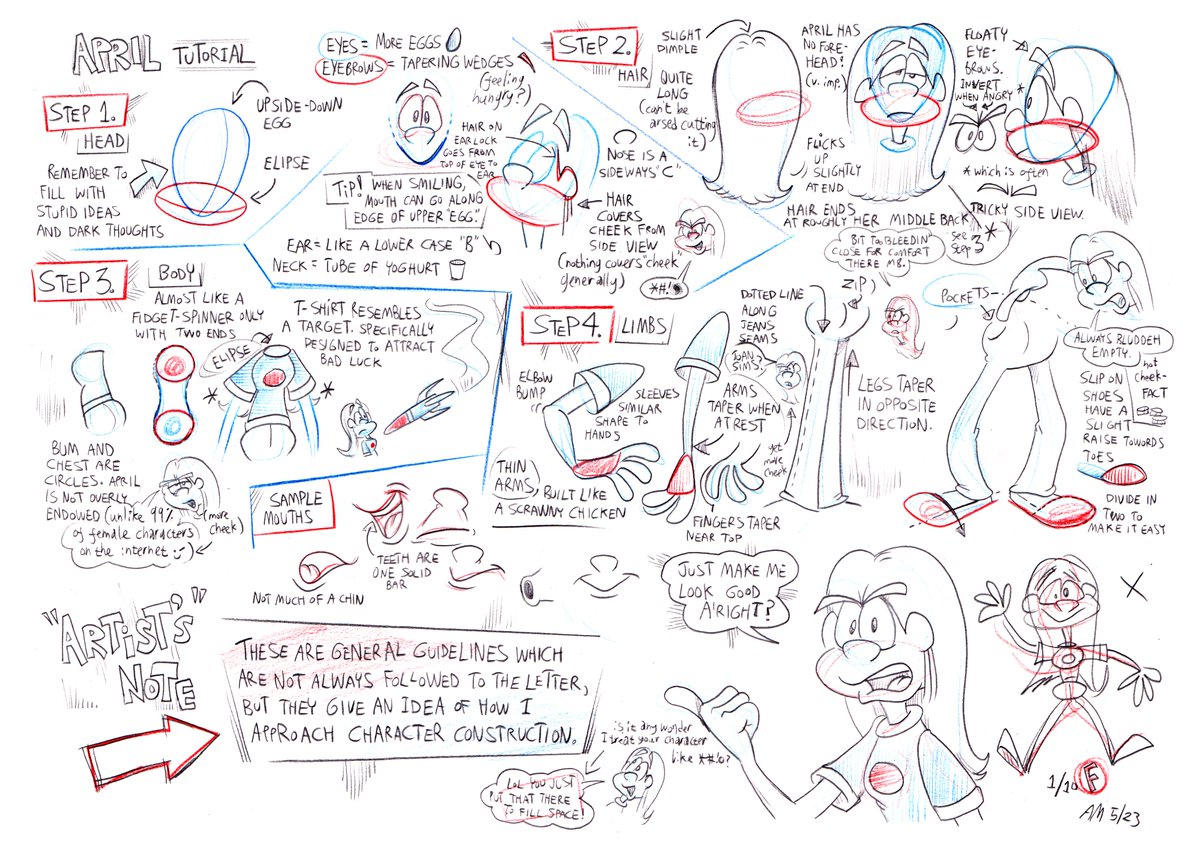 APRIL TUTORIAL
STEP 1.
HEAD
UPSIDE-DOWN
EGG
ELIPSE
REMEMBER TO
FILL WITH
STUPID IDEAS
AND DARK THOUGHTS
EYES = MORE EGGS
EYEBROWS = TAPERING WEDGES
(feeling
hungry?)
HAIR ON
EAR LOCK
GOES FROM
TOP OF EYE TO
EAR
TIP! WHEN SMILING,
MOUTH CAN GO ALONG
EDGE OF UPPER "EGG".
EAR = LIKE A LOWER CASE "B"
NECK = TUBE OF YOGHURT
NOSE IS A
SIDEWAYS "C"
HAIR
COVERS
CHEEK FROM
SIDE VIEW
(nothing covers "cheek"
generally)
*#!
STEP 2.
HAIR
SLIGHT
DIMPLE
QUITE
LONG
(can't be
arsed cutting
it)
APRIL HAS
NO FORE-
HEAD!
(v. imp.)
FLICKS
UP
SLIGHTLY
AT END
HAIR ENDS
AT ROUGHLY HER MIDDLE BACK
FLOATY
EYE-
BROWS.
INVERT
WHEN ANGRY *
* which is often
TRICKY SIDE VIEW.
* See
Step 3
STEP 3.
BODY
ALMOST LIKE A
FIDGET-SPINNER ONLY
WITH TWO ENDS
ELIPSE
T-SHIRT RESEMBLES
A TARGET. SPECIFICALLY
DESIGNED TO ATTRACT
BAD LUCK
BUM AND
CHEST ARE
CIRCLES. APRIL
IS NOT OVERLY
ENDOWED (unlike 99%
of female characters
on the internet)
(more
cheek)
STEP 4.
LIMBS
ELBOW
BUMP
SLEEVES
SIMILAR
SHAPE TO
HANDS
THIN
ARMS, BUILT LIKE
A SCRAWNY CHICKEN
ARMS
TAPER WHEN
AT REST
FINGERS TAPER
NEAR TOP
DOTTED LINE
ALONG
JEANS
SEAMS
JOAN
SIMS?
yet
more
cheek
BIT TOO BLEEDIN'
CLOSE FOR COMFORT
THERE M8.
ZIP)
LEGS TAPER
IN OPPOSITE
DIRECTION.
POCKETS-
ALWAYS BLUDDEH
EMPTY.
hot
cheek-
FACT
SLIP ON
SHOES
HAVE A
SLIGHT
RAISE TOWARDS
TOES
DIVIDE IN
TWO TO
MAKE IT EASY
SAMPLE
MOUTHS
TEETH ARE
ONE SOLID
BAR
NOT MUCH OF A CHIN
"ARTIST'S"
NOTE
THESE ARE GENERAL GUIDELINES WHICH
ARE NOT ALWAYS FOLLOWED TO THE LETTER,
BUT THEY GIVE AN IDEA OF HOW I
APPROACH CHARACTER CONSTRUCTION.
JUST MAKE ME
LOOK GOOD
A'RIGHT?
is it any wonder
I treat your character
like *#!o?
LOL YOU JUST
PUT THAT THERE
TO FILL SPACE!
X
1/10 F
AM 5/23